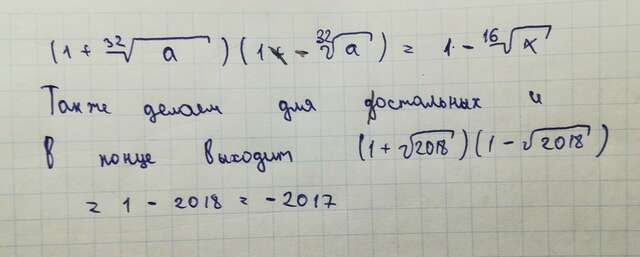 (1 + ³²√a)(1 - ³²√a) = 1 - ¹⁶√x
Так же делаем для достальных и
в конце выходит (1+√2018)(1-√2018)
= 1 - 2018 = -2017